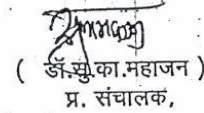 ( डॉ.सु.का.महाजन )
प्र. संचालक,